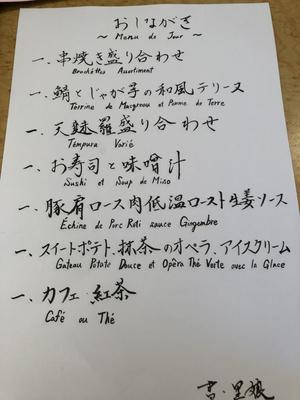 おしながき
～ Menu de Jour ～
一、串焼き盛り合わせ
Brochettes Assortiment
一、鯖とじゃが芋の和風テリーヌ
Terrine de Maqreau et Pomme de Terre
一、天麩羅盛り合わせ
Tempura Varié
一、お寿司と味噌汁
Sushi et Soup de Miso
一、豚肩ロース肉低温ロースト生姜ソース
Échine de Porc Roti sauce Gingembre
一、スイートポテト、抹茶のオペラ、アイスクリーム
Gateau Potate Douce et Opéra Thé Verte avec la Glace
一、カフェ 紅茶
Café ou Thé